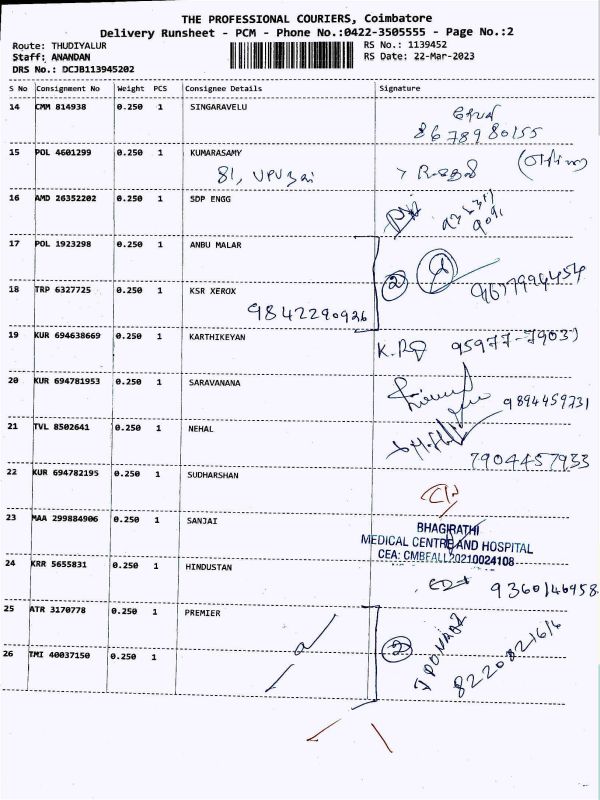 THE PROFESSIONAL COURIERS, Coimbatore
Delivery Runsheet - PCM - Phone No.:0422-3505555 - Page No.:2
Route: THUDIYALUR
Staff: ANANDAN
DRS No.: DCJB113945202
RS No.: 1139452
RS Date: 22-Mar-2023
S No Consignment No Weight PCS Consignee Details Signature
14 CMM 814938 0.250 1 SINGARAVELU
8678980155
15 POL 4601299 0.250 1 KUMARASAMY
81,
16 AMD 26352202 0.250 1 SDP ENGG
17 POL 1923298 0.250 1 ANBU MALAR
2
18 TRP 6327725 0.250 1 KSR XEROX
9842290926
19 KUR 694638669 0.250 1 KARTHIKEYAN
20 KUR 694781953 0.250 1 SARAVANANA
9894459731
21 TVL 8502641 0.250 1 NEHAL
7904457933
22 KUR 694782195 0.250 1 SUDHARSHAN
23 MAA 299884906 0.250 1 SANJAI
BHAGIRATHI
MEDICAL CENTRE AND HOSPITAL
CEA: CMBFALL20210024108
24 KRR 5655831 0.250 1 HINDUSTAN
9360146958
25 ATR 3170778 0.250 1 PREMIER
2
26 TMI 40037150 0.250 1